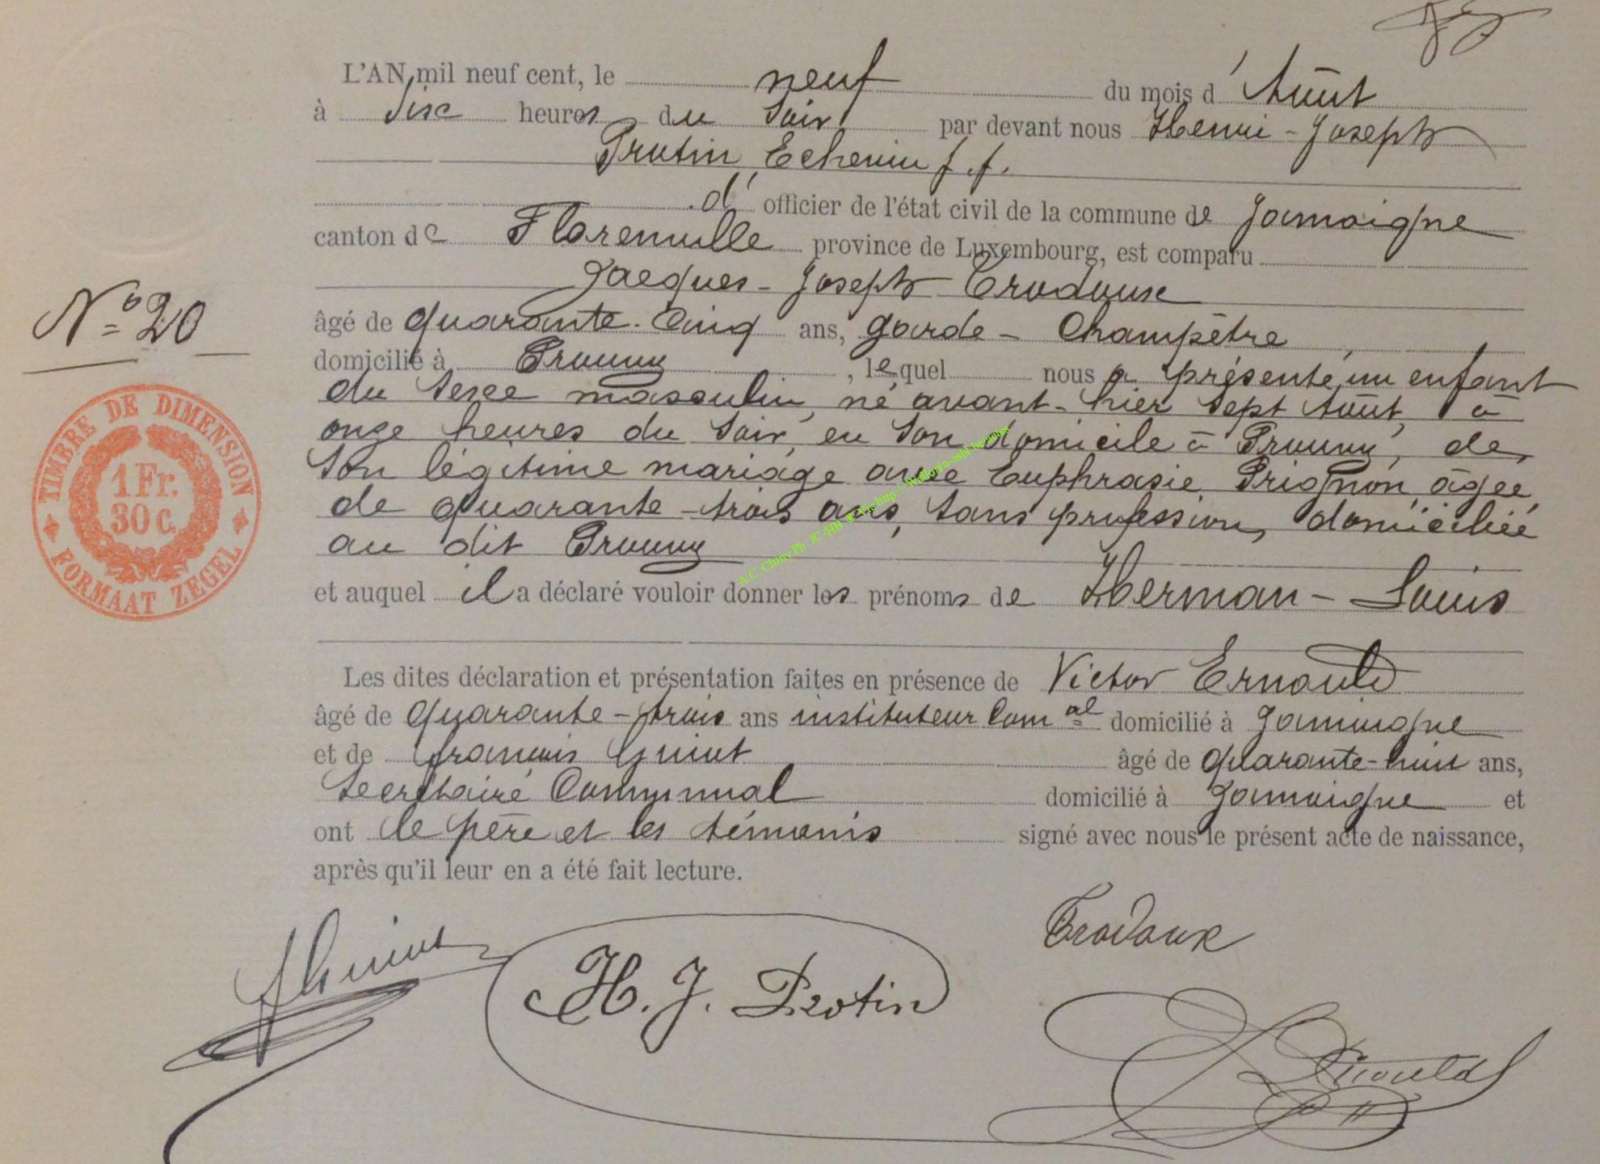 L'AN mil neuf cent, le neuf du mois d'Août
à six heures du soir par devant nous Henri-Joseph
Protin, Echevin f.f.
d' officier de l'état civil de la commune de Jamoigne
canton de Florenville province de Luxembourg, est comparu
Jacques-Joseph Crodoux
âgé de quarante-cinq ans, garde-Champêtre,
domicilié à Prouvy, lequel nous a présenté un enfant
du sexe masculin, né avant-hier sept Août, à
onze heures du soir, en son domicile à Prouvy, de
son légitime mariage avec Euphrasie Prignon, âgée
de quarante-trois ans, sans profession, domiciliée
au dit Prouvy
et auquel il a déclaré vouloir donner les prénoms de Herman-Louis
Les dites déclaration et présentation faites en présence de Victor Ernould
âgé de quarante-trois ans instituteur Comal domicilié à Jamoigne
et de François Guiot âgé de quarante-huit ans,
Secrétaire Communal domicilié à Jamoigne et
ont le père et les témoins signé avec nous le présent acte de naissance,
après qu'il leur en a été fait lecture.
N° 20
TIMBRE DE DIMENSION
1 Fr.
30 c.
FORMAAT ZEGEL
Crodoux
H. J. Protin